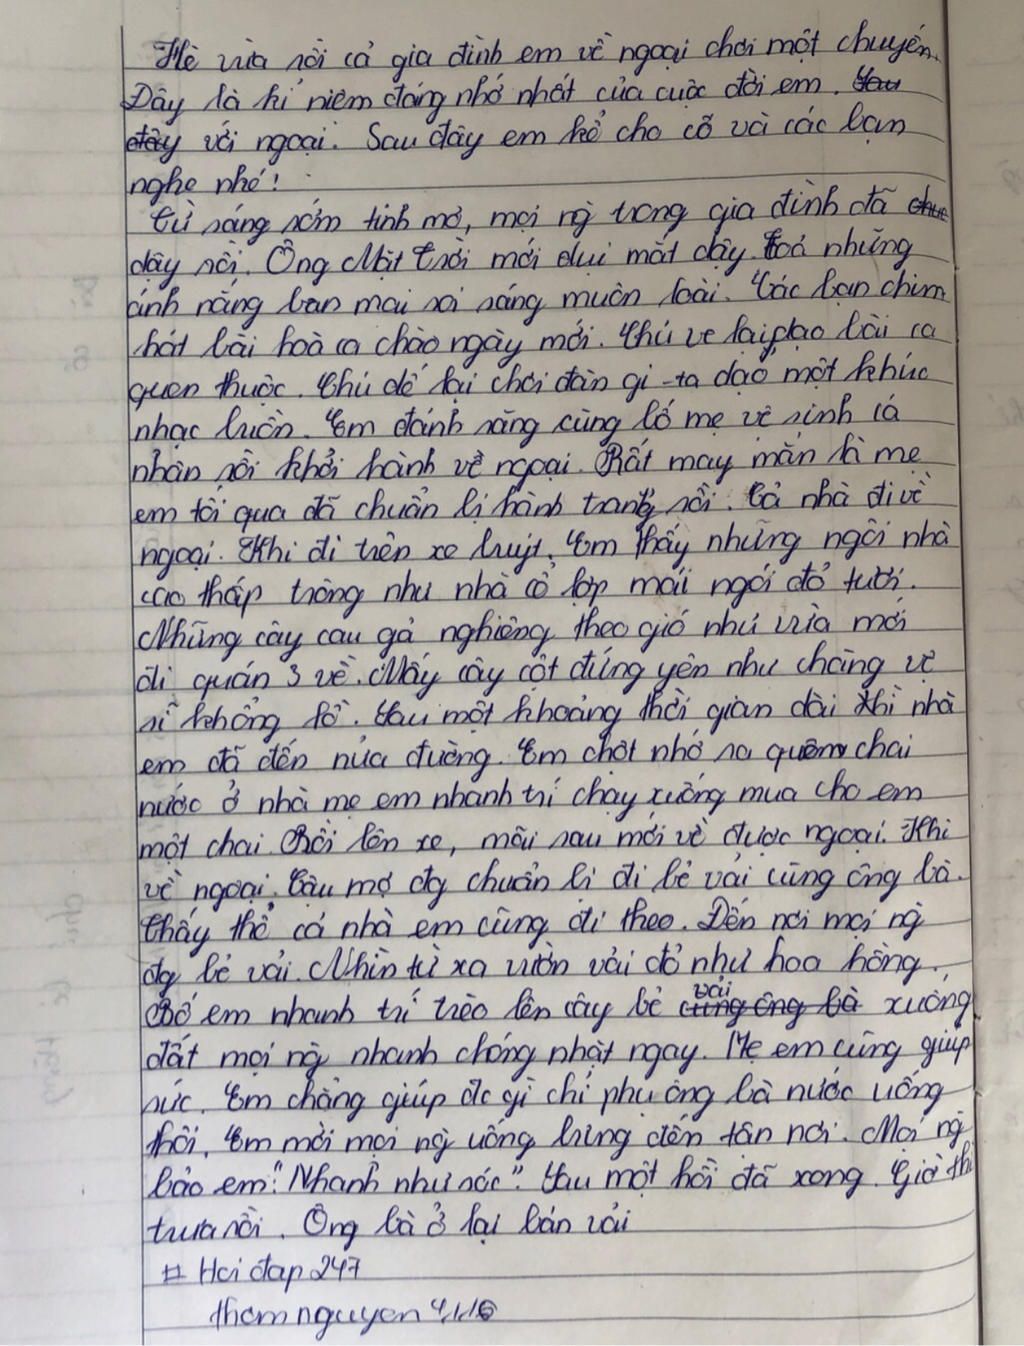 Hè vừa rồi cả gia đình em về ngoại chơi một chuyến.
Đây là kỉ niệm đáng nhớ nhất của cuộc đời em. Sau
đây với ngoại. Sau đây em kể cho cô và các bạn
nghe nhé!
Từ sáng sớm tinh mơ, mọi ng` trong gia đình đã
dậy rồi. Ông Mặt Trời mới dụi mắt dậy toả những
ánh nắng ban mai soi sáng muôn loài. Các bạn chim
hát bài hoà ca chào ngày mới. Chú ve lại dạo bài ca
quen thuộc. Chú dế lại chơi đàn gi-ta dạo một khúc
nhạc luôn. Em đánh răng cùng bố mẹ vệ sinh cá
nhân rồi khởi hành về ngoại. Rất may mắn là mẹ
em tối qua đã chuẩn bị hành trang rồi. Cả nhà đi về
ngoại. Khi đi trên xe buýt. Em thấy những ngôi nhà
cao thấp trông như nhà cổ lợp mái ngói đỏ tươi.
Những cây cau gả nghiêng theo gió như vừa mới
đi quán 3 về. Mấy cây cột đứng yên như chàng vệ
sĩ khổng lồ. Sau một khoảng thời gian dài thì nhà
em đã đến nửa đường. Em chợt nhớ ra quên chai
nước ở nhà mẹ em nhanh trí chạy xuống mua cho em
một chai. Rồi lên xe, mãi sau mới về được ngoại. Khi
về ngoại, Cậu mợ đg chuẩn bị đi bẻ vải cùng ông bà.
Thấy thế cả nhà em cũng đi theo. Đến nơi mọi ng`
đg bẻ vải. Nhìn từ xa vườn vải đỏ như hoa hồng.
Bố em nhanh trí trèo lên cây bẻ vải cùng ông bà xuống
đất mọi ng` nhanh chóng nhặt ngay. Mẹ em cũng giúp
sức. Em chẳng giúp đc gì chỉ phụ ông bà nước uống
thôi. Em mời mọi ng` uống bưng đến tận nơi. Mọi ng`
bảo em: "Nhanh như sóc". Sau một hồi đã xong. Giờ thì
trưa rồi. Ông bà ở lại bán vải
# Hoi đap 247